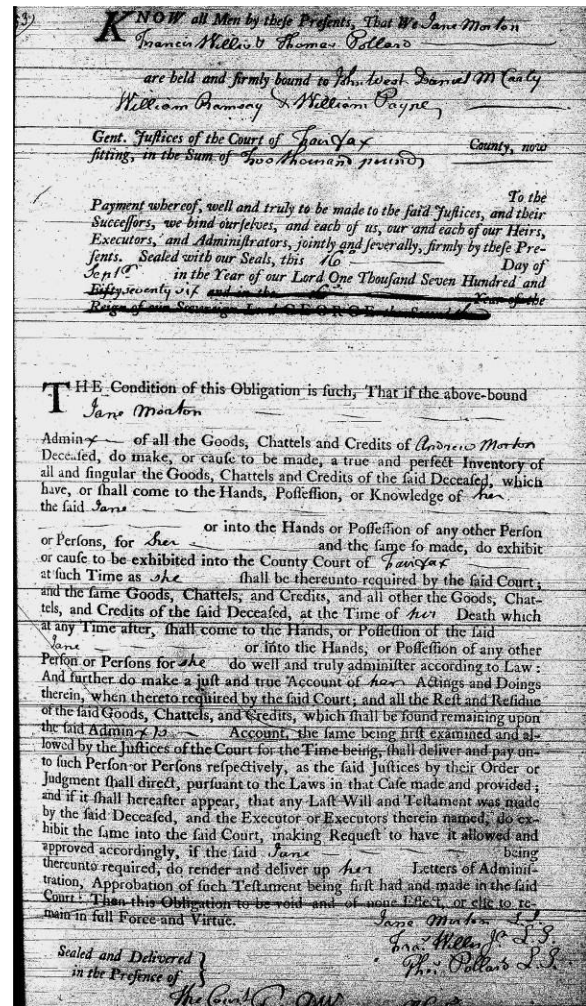 KNOW all Men by theſe Preſents, That We Jane Morton
Francis Willis & Thomas Pollard
are held and firmly bound to John West Daniel McCarty
William Ramsay & William Payne
Gent. Juſtices of the Court of Fairfax County, now
ſitting, in the Sum of two thousand pounds
To the
Payment whereof, well and truly to be made to the ſaid Juſtices, and their
Succeſſors, we bind ourſelves, and each of us, our and each of our Heirs,
Executors, and Adminiſtrators, jointly and ſeverally, firmly by theſe Pre-
ſents. Sealed with our Seals, this 16 Day of
Septr in the Year of our Lord One Thouſand Seven Hundred and
Fifty seventy six and in the Year of the
Reign of our Sovereign Lord GEORGE the Second
THE Condition of this Obligation is ſuch, That if the above-bound
Jane Morton
Adminx of all the Goods, Chattels and Credits of Andrew Morton
Deceaſed, do make, or cauſe to be made, a true and perfect Inventory of
all and ſingular the Goods, Chattels and Credits of the ſaid Deceaſed, which
have, or ſhall come to the Hands, Poſſeſſion, or Knowledge of her
the ſaid Jane
or into the Hands or Poſſeſſion of any other Perſon
or Perſons, for her and the ſame ſo made, do exhibit
or cauſe to be exhibited into the County Court of Fairfax
at ſuch Time as she ſhall be thereunto required by the ſaid Court;
and the ſame Goods, Chattels, and Credits, and all other the Goods, Chat-
tels, and Credits of the ſaid Deceaſed, at the Time of her Death which
at any Time after, ſhall come to the Hands, or Poſſeſſion of the ſaid
Jane or into the Hands, or Poſſeſſion of any other
Perſon or Perſons for she do well and truly adminiſter according to Law:
And further do make a juſt and true Account of her Actings and Doings
therein, when thereto required by the ſaid Court; and all the Reſt and Reſidue
of the ſaid Goods, Chattels, and Credits, which ſhall be found remaining upon
the ſaid Adminxs Account, the ſame being firſt examined and al-
lowed by the Juſtices of the Court for the Time being, ſhall deliver and pay un-
to ſuch Perſon or Perſons reſpectively, as the ſaid Juſtices by their Order or
Judgment ſhall direct, purſuant to the Laws in that Caſe made and provided;
and if it ſhall hereafter appear, that any Laſt Will and Teſtament was made
by the ſaid Deceaſed, and the Executor or Executors therein named, do ex-
hibit the ſame into the ſaid Court, making Requeſt to have it allowed and
approved accordingly, if the ſaid Jane being
thereunto required, do render and deliver up her Letters of Adminiſ-
tration, Approbation of ſuch Teſtament being firſt had and made in the ſaid
Court: Then this Obligation to be void and of none Effect, or elſe to re-
main in full Force and Virtue.
Jane Morton L.S.
Fras Willis Jr L.S.
Thos Pollard L.S.
Sealed and Delivered
in the Preſence of
The Court